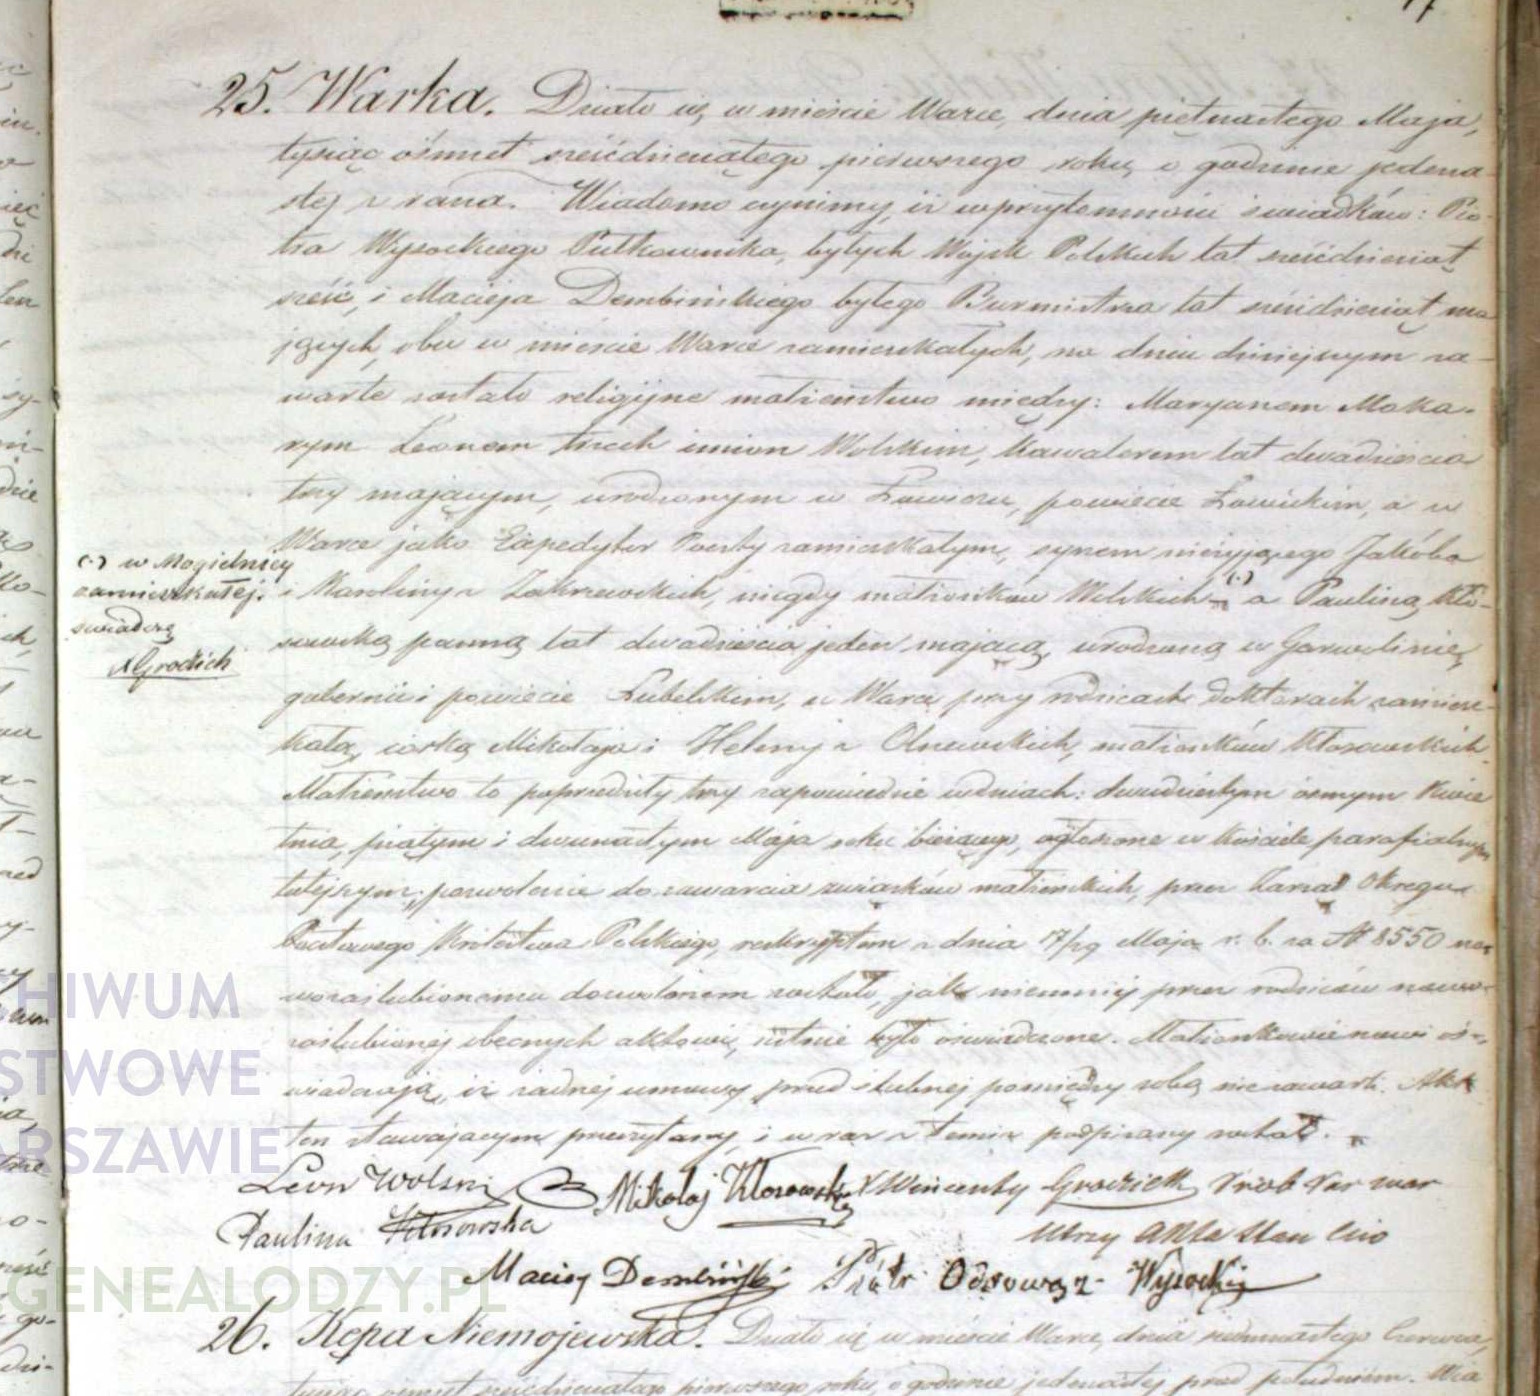 25. Warka. Działo się, w mieście Warce, dnia piętnastego Maja,
tysiąc ośmset sześćdziesiątego pierwszego roku, o godzinie jedena-
stej z rana. Wiadomo czynimy, iż w przytomności świadków: Pio-
tra Wysockiego Pułkownika, byłych Wojsk Polskich lat sześćdziesiąt
sześć, i Macieja Dembińskiego byłego Burmistrza lat sześćdziesiąt ma-
jących, obu w mieście Warce zamieszkałych, na dniu dzisiejszym za-
warte zostało religijne małżeństwo między: Maryanem Maka-
rym Leonem trzech imion Wolskim, kawalerem lat dwadzieścia
trzy mającym, urodzonym w Łowiczu, powiecie Łowickim, a w
Warce jako Expedytor Poczty zamieszkałym, synem nieżyjącego Jakóba
i Karoliny z Zakrzewskich, niegdy małżonków Wolskich (·) a Pauliną Kło-
sowską panną lat dwadzieścia jeden mającą, urodzoną w Garwolinie,
gubernii i powiecie Lubelskim, w Warce przy rodzicach Doktorach zamiesz-
kałą, córką Mikołaja i Heleny z Olszewskich, małżonków Kłosowskich.
Małżeństwo to poprzedziły trzy zapowiedzie w dniach: dwudziestym ósmym Kwie
tnia, piątym i dwunastym Maja roku bieżącego, ogłoszone w kościele parafialnym
tutejszym; pozwolenie do zawarcia związków małżeńskich, przez Zarząd Okręgu
Pocztowego Królestwa Polskiego, reskryptem z dnia 17/29 Maja r. b. za N 8550 no
wozaślubionemu dozwolonem zostało, jak niemniej przez rodziców nowo-
zaślubionej obecnych aktowi, ustnie było oświadczone. Małżonkowie nowi oś-
wiadczają, iż żadnej umowy przed ślubnej pomiędzy sobą nie zawarli. Akt
ten stawającym przeczytany, i wraz z temiż podpisany został.
(·) w Mogielnicy
zamieszkałej.
świadczę
XGrodzick
Leon Wolski Mikołaj Kłosowski X Wincenty Grodzick Prob Par War
Paulina Kłosowska Utrzy Akta Stan Cwo
Maciej Dembiński Piotr Odrowąż Wysocki
26. Kępa Niemojewska. Działo się w mieście Warce, dnia siedmnastego Czerwca,
tysiąc ośmset sześćdziesiątego pierwszego roku, o godzinie jedenastej przed południem. Wia
ARCHIWUM
PAŃSTWOWE
W WARSZAWIE
GENEALODZY.PL